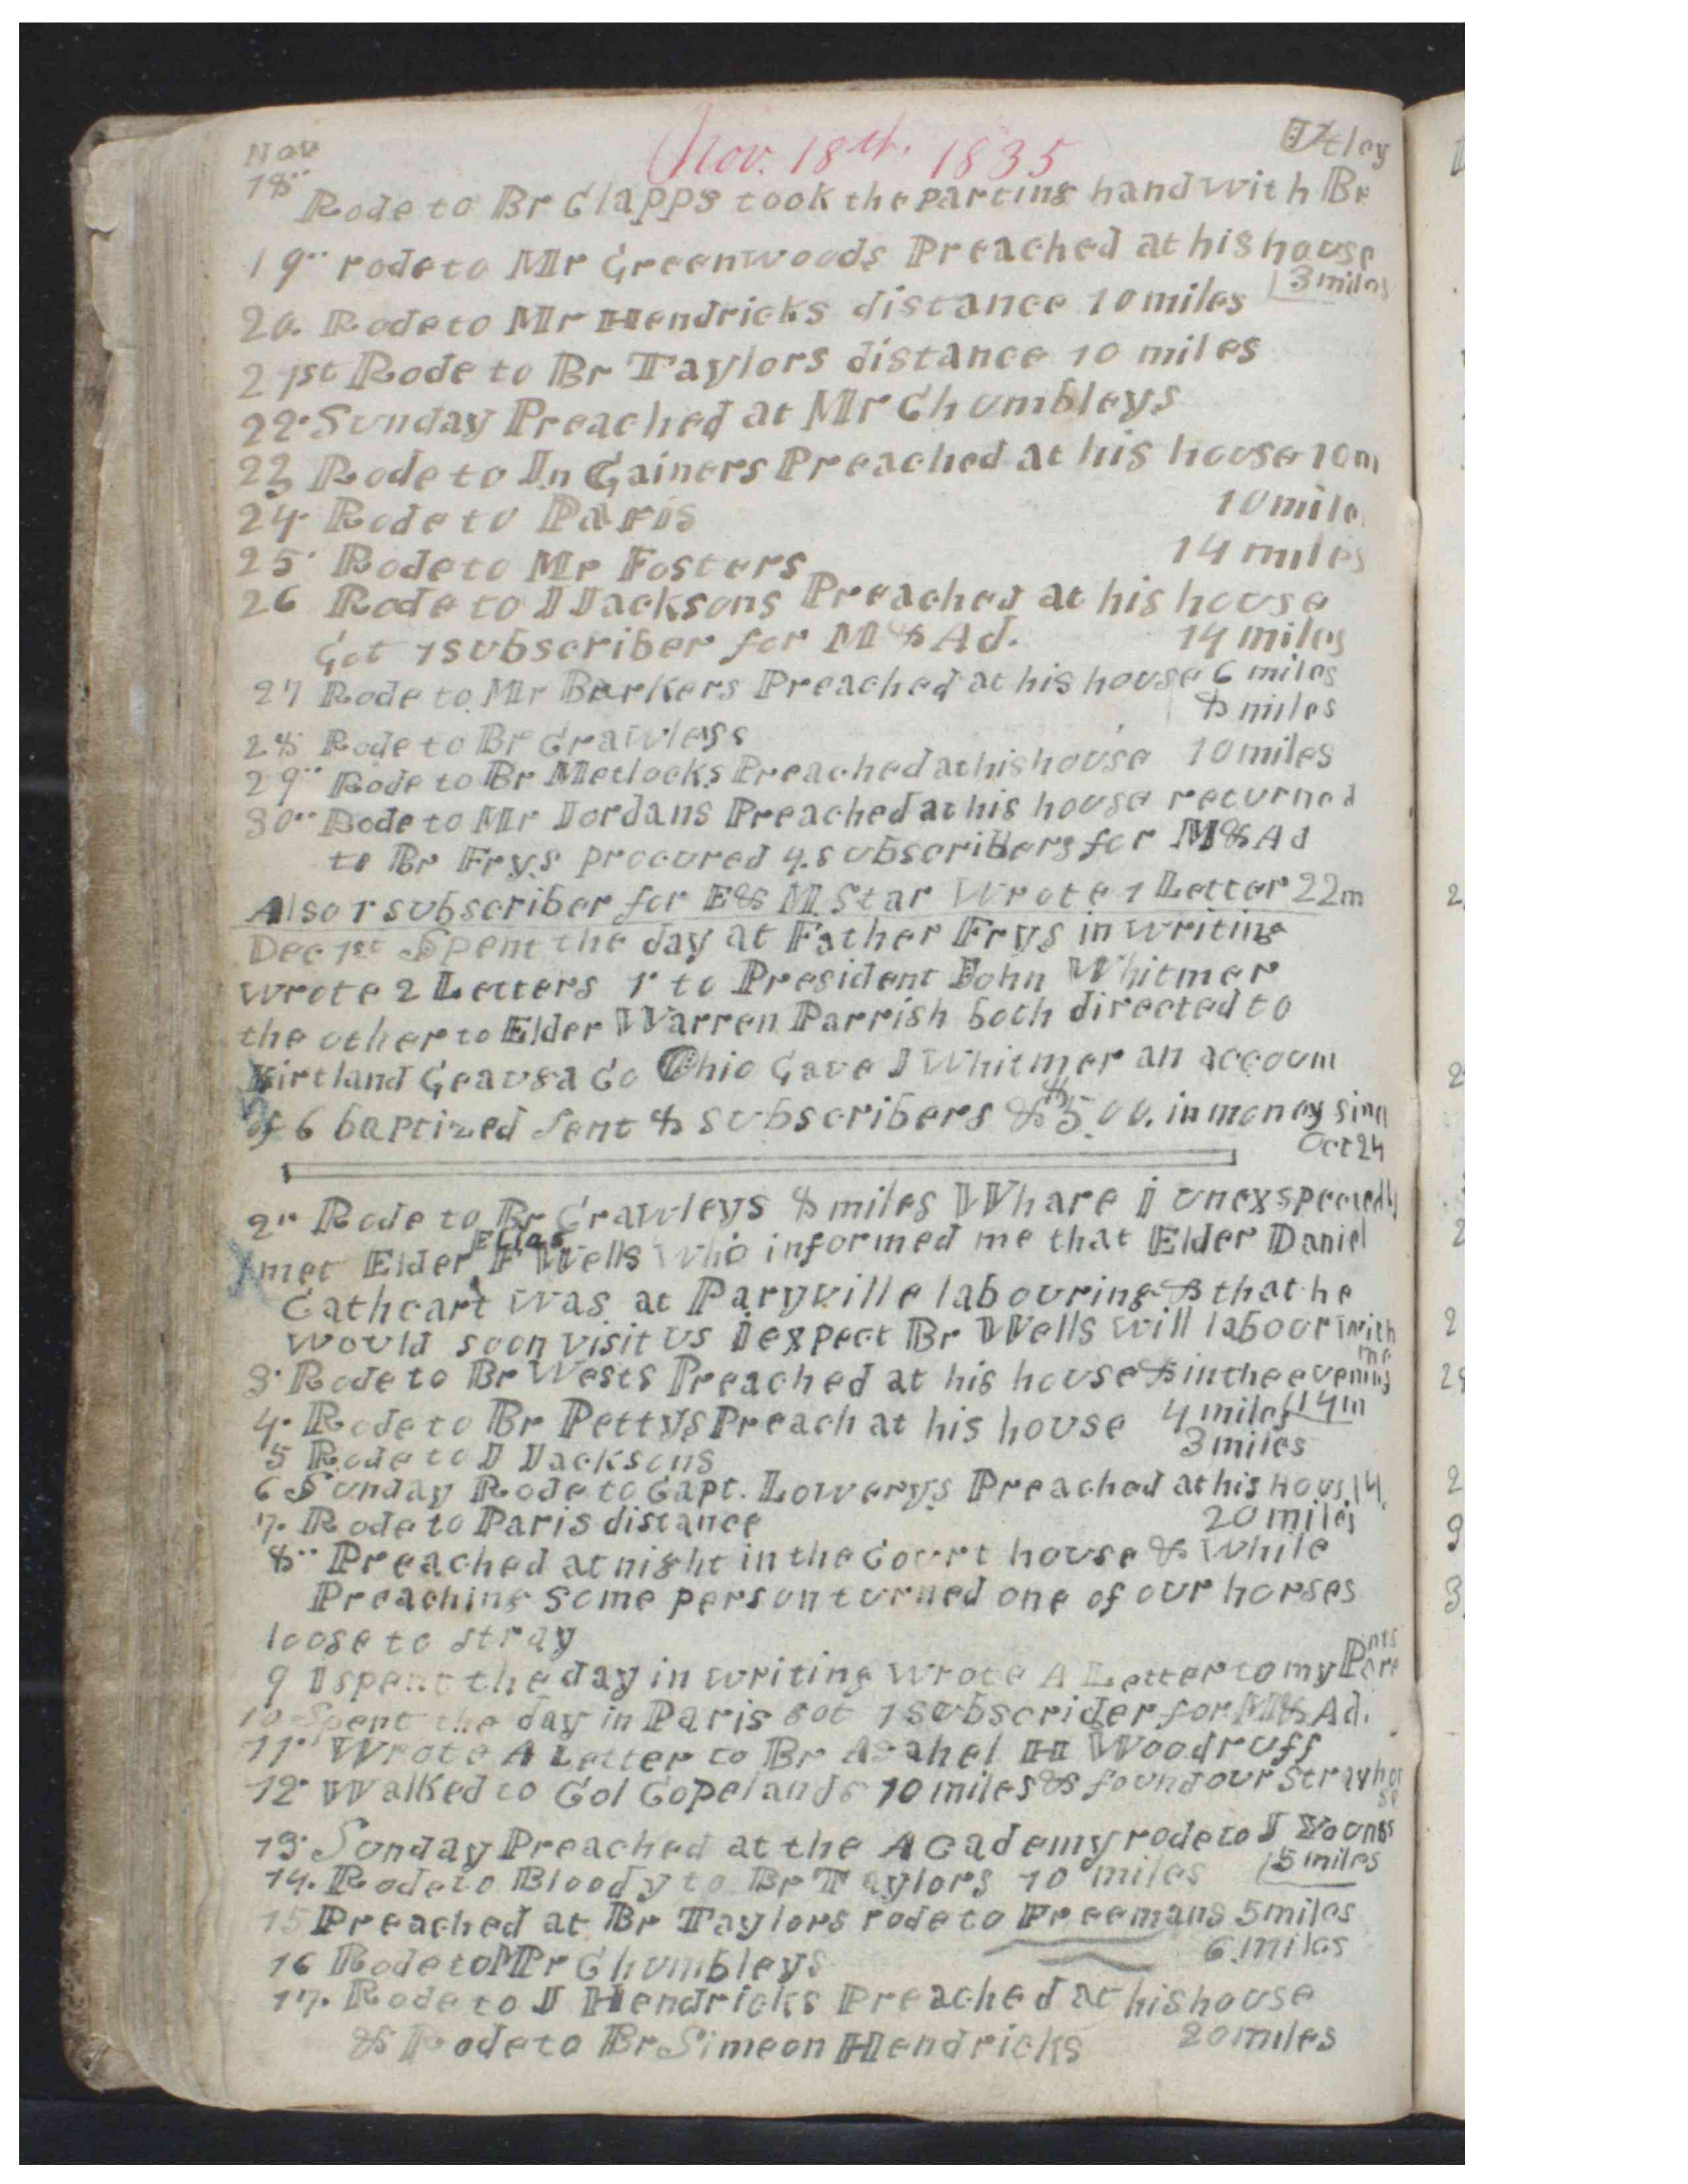 Nov. 18th. 1835
Nov Utley
18" Rode to Br Clapps took the parting hand with Br
19" rode to Mr Greenwoods Preached at his house
3 miles
20. Rode to Mr Hendricks distance 10 miles
21st Rode to Br Taylors distance 10 miles
22" Sunday Preached at Mr Chumbleys
23 Rode to Jn Gainers Preached at his house 10 m
24" Rode to Paris 10 mile
25" Rode to Mr Fosters 14 miles
26 Rode to J Jacksons Preached at his house
Got 1 subscriber for M & Ad. 14 miles
27 Rode to Mr Barkers Preached at his house 6 miles
28 Rode to Br Crawleys 8 miles
29" Rode to Br Metlocks Preached at his house 10 miles
30" Rode to Mr Jordans Preached at his house returned
to Br Frys procured 4 subscribers for M & Ad
Also 1 subscriber for E & M Star Wrote 1 Letter 22 m
Dec 1st Spent the day at Father Frys in writing
wrote 2 Letters 1" to President John Whitmer
the other to Elder Warren Parrish both directed to
Kirtland Geausa Co Ohio Gave J Whitmer an accoum
of 6 baptized sent 8 subscribers & $5.00. in money sinc
Oct 24
2" Rode to Br Crawleys 8 miles Whare I unexspectedly
met Elder Elias F Wells who informed me that Elder Daniel
Cathcart was at Paryville labouring & that he
would soon visit us I expect Br Wells will labour with
me
3" Rode to Br Wests Preached at his house & in the evening
14 m
4" Rode to Br Pettys Preach at his house 4 miles
5 Rode to J Jacksons 3 miles
6 Sunday Rode to Capt. Lowerys Preached at his hous 14
7. Rode to Paris distance 20 miles
8" Preached at night in the Court house & While
Preaching some person turned one of our horses
loose to stray
9 I spent the day in writing wrote A Letter to my Parents
10 Spent the day in Paris got 1 subscrider for M & Ad.
11" Wrote A Letter to Br Asahel H Woodruff
12" Walked to Col Copelands 10 miles & found our stray horse
13" Sunday Preached at the Academy rode to J Youngs
5 miles
14. Rode to Bloody to Br Taylors 10 miles
15 Preached at Br Taylors rode to Freemans 5 miles
16 Rode to Mr Chumbleys 6 miles
17. Rode to J Hendricks Preached at his house
& Rode to Br Simeon Hendricks 20 miles